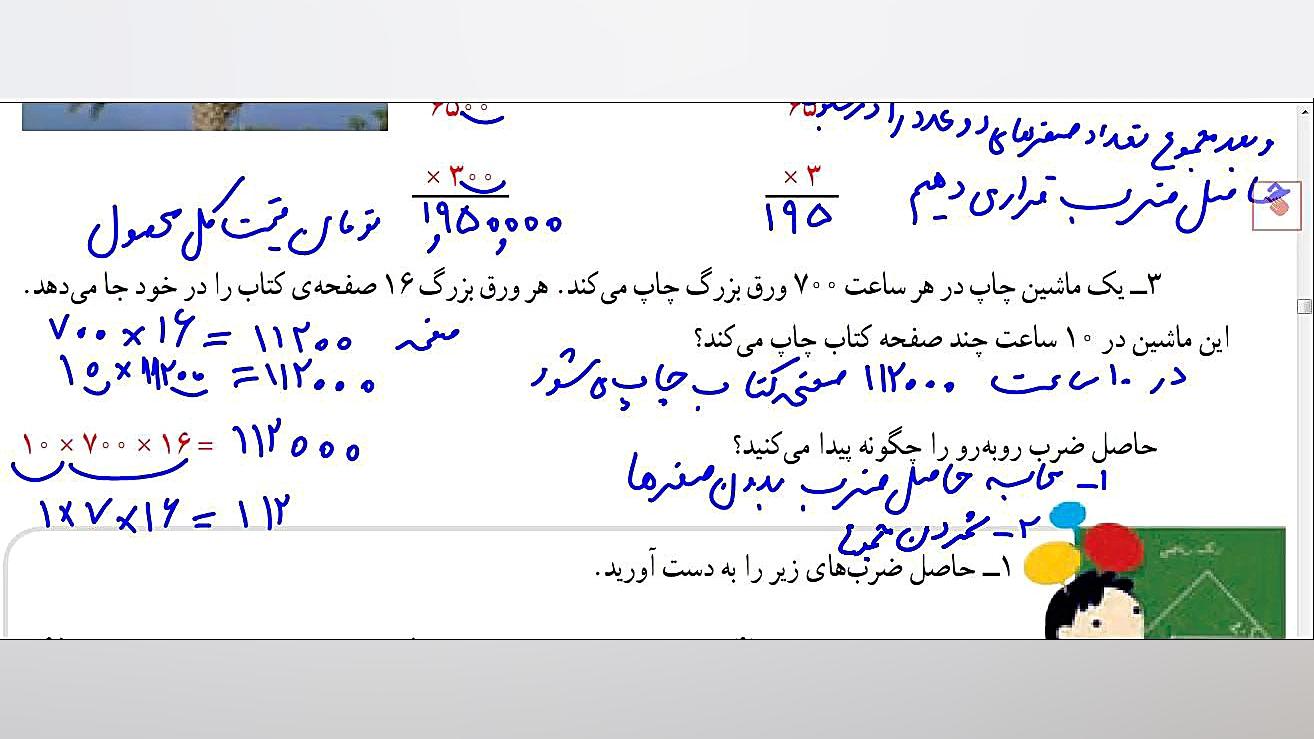 ۶۵۰۰
۶۵
و بعد مجموع تعداد صفرهای دو عدد را در جلوی
× ۳۰۰
× ۳
حاصل ضرب قرار می دهیم
۱,۹۵۰,۰۰۰ تومان قیمت کل محصول
۱۹۵
۳ــ یک ماشین چاپ در هر ساعت ۷۰۰ ورق بزرگ چاپ می‌کند. هر ورق بزرگ ۱۶ صفحه‌ی کتاب را در خود جا می‌دهد.
این ماشین در ۱۰ ساعت چند صفحه کتاب چاپ می‌کند؟
۷۰۰ × ۱۶ = ۱۱۲۰۰ صفحه
۱۰ × ۱۱۲۰۰ = ۱۱۲۰۰۰
در ۱۰ ساعت ۱۱۲۰۰۰ صفحه کتاب چاپ می شود
حاصل ضرب روبه‌رو را چگونه پیدا می‌کنید؟
۱۰ × ۷۰۰ × ۱۶ = ۱۱۲۰۰۰
۱ـ محاسبه حاصل ضرب بدون صفرها
۱ × ۷ × ۱۶ = ۱۱۲
۲ـ شمردن مجموع
۱ــ حاصل ضرب‌های زیر را به دست آورید.